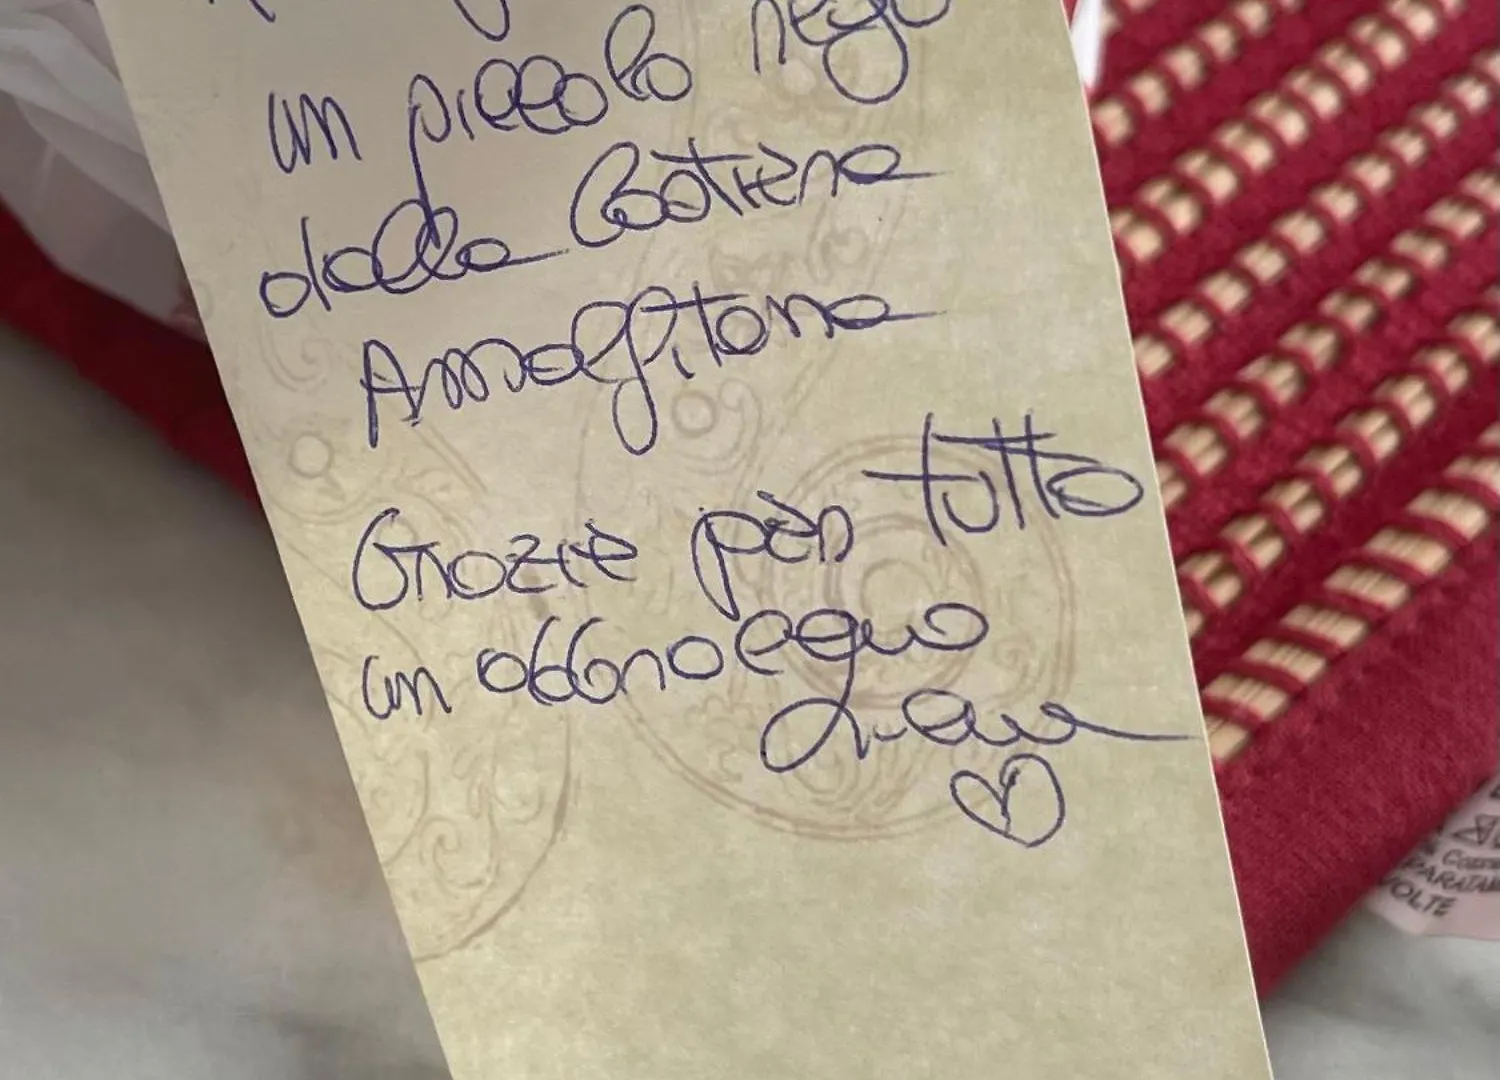 un piccolo rega
dalla Costiera
Amalfitana
Grazie per tutto
un abbraccio
♡
PARATA
VOLTE